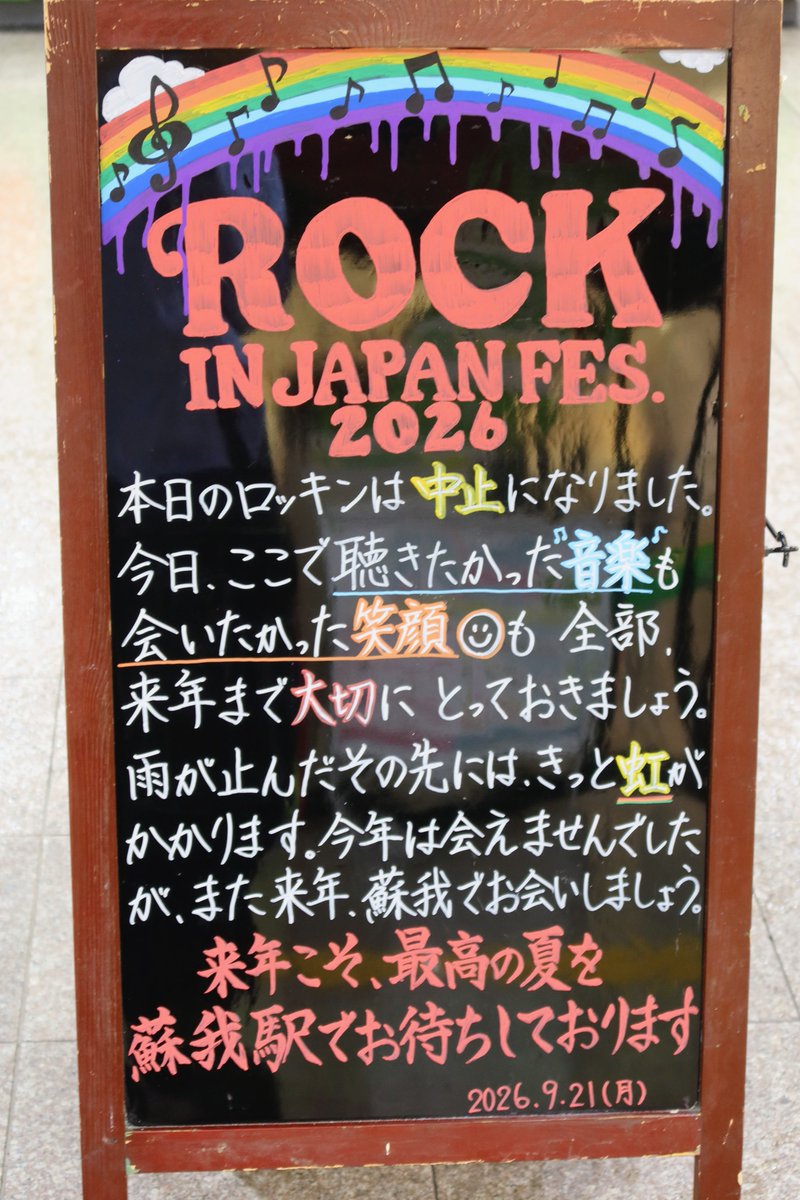 ROCK
IN JAPAN FES.
2026
本日のロッキンは中止になりました。
今日、ここで聴きたかった"音楽"も
会いたかった笑顔も 全部、
来年まで大切に とっておきましょう。
雨が止んだその先には、きっと虹が
かかります。今年は会えませんでした
が、また来年、蘇我でお会いしましょう。
来年こそ、最高の夏を
蘇我駅でお待ちしております
2026.9.21(月)